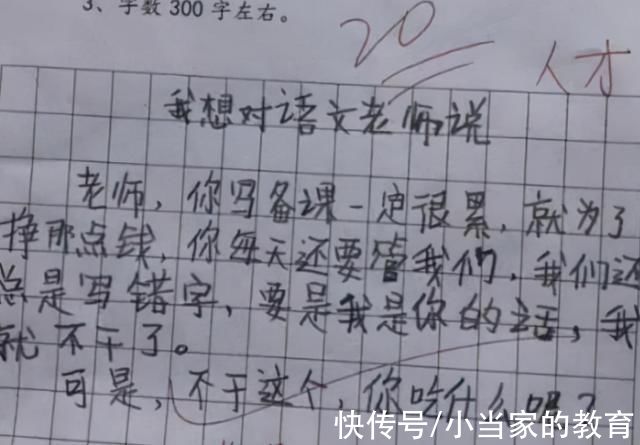 3、字数300字左右。
20
人才
我想对语文老师说
老师,你写备课一定很累,就为了
挣那点钱,你每天还要管我们,我们还
总是写错字,要是我是你的话,我
就不干了。
可是,不干这个,你吃什么呢?
快传号/小当家的教育